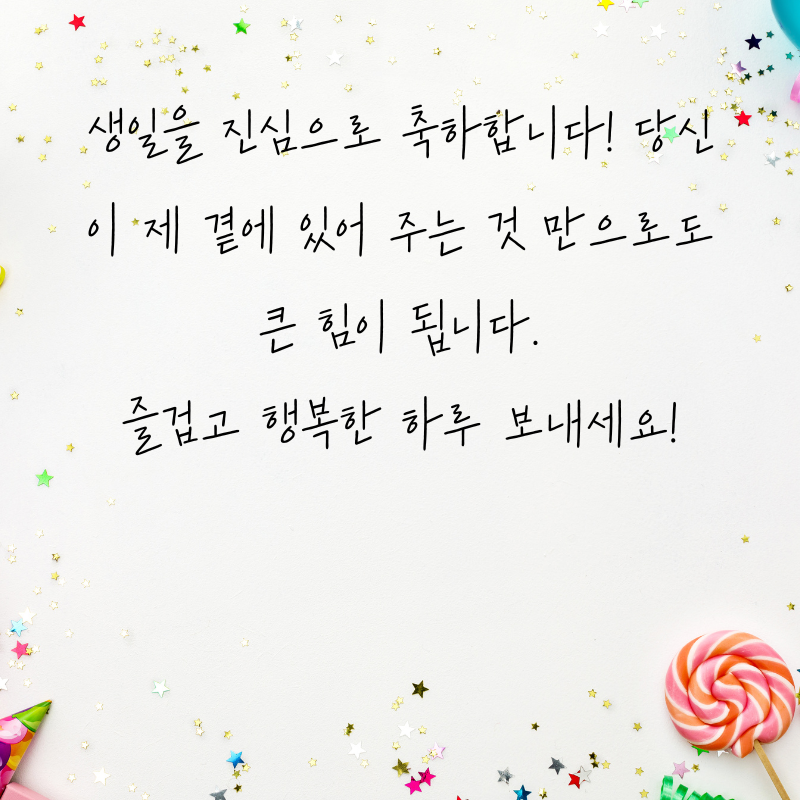 생일을 진심으로 축하합니다! 당신
이 제 곁에 있어 주는 것 만으로도
큰 힘이 됩니다.
즐겁고 행복한 하루 보내세요!